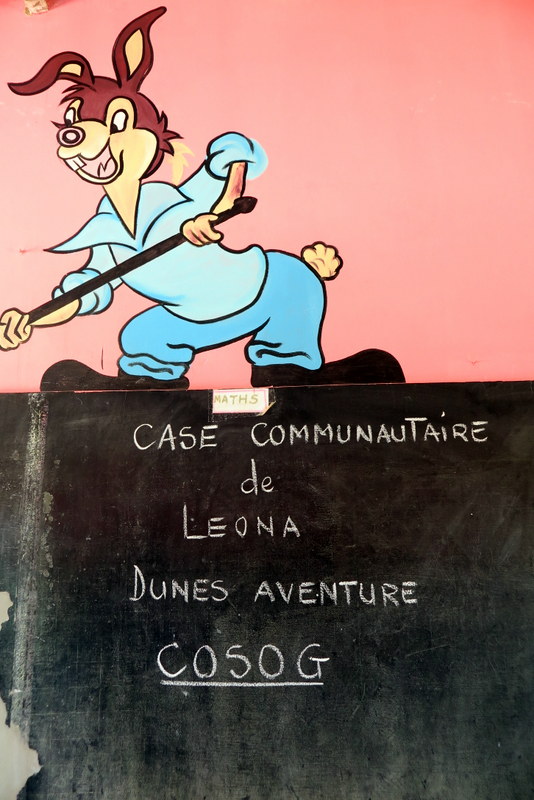 MATHS
CASE COMMUNAUTAIRE
de
LEONA
DUNES AVENTURE
COSOG